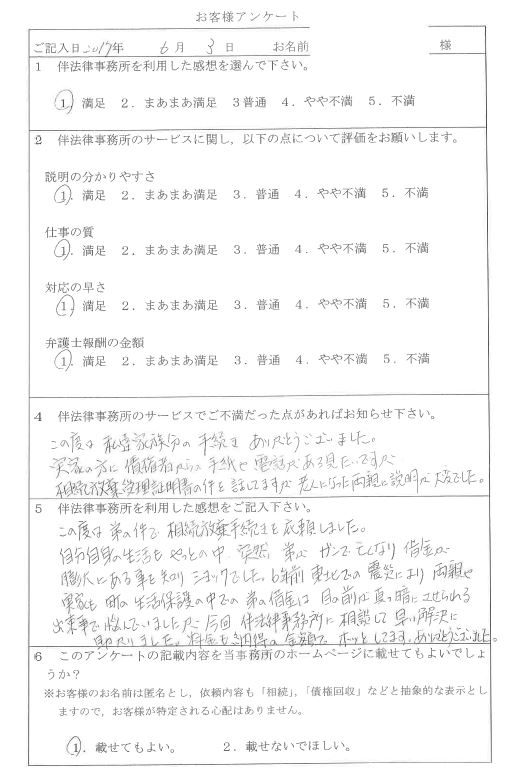 お客様アンケート
ご記入日2017年 6月 3日 お名前 様
1 伴法律事務所を利用した感想を選んで下さい。
1．満足 2．まあまあ満足 3普通 4．やや不満 5．不満
2 伴法律事務所のサービスに関し，以下の点について評価をお願いします。
説明の分かりやすさ
1．満足 2．まあまあ満足 3．普通 4．やや不満 5．不満
仕事の質
1．満足 2．まあまあ満足 3．普通 4．やや不満 5．不満
対応の早さ
1．満足 2．まあまあ満足 3．普通 4．やや不満 5．不満
弁護士報酬の金額
1．満足 2．まあまあ満足 3．普通 4．やや不満 5．不満
4 伴法律事務所のサービスでご不満だった点があればお知らせ下さい。
この度は 私達家族分の手続き ありがとうございました。
実家の方に 債権者からの手紙や電話がある見たいですが
相続放棄受理証明書の件と話してますが 老人になった両親に説明が大変でした。
5 伴法律事務所を利用した感想をご記入下さい。
この度は 弟の件で 相続放棄手続きを依頼しました。
自分自身の生活も やっとの中 突然 弟が ガンで亡くなり 借金が
膨大にある事を知り ショックでした。6年前 東北での震災により 両親や
実家も 町の生活保護の中での 弟の借金は 目の前が真っ暗にさせられる
出来事で悩んでいましたが 今回 伴法律事務所に相談して 早い解決に
なりました。料金も納得の金額で ホッとしてます。ありがとうございました。
6 このアンケートの記載内容を当事務所のホームページに載せてもよいでしょ
うか？
※お客様のお名前は匿名とし，依頼内容も「相続」，「債権回収」などと抽象的な表示とし
ますので，お客様が特定される心配はありません。
1．載せてもよい。 2．載せないでほしい。